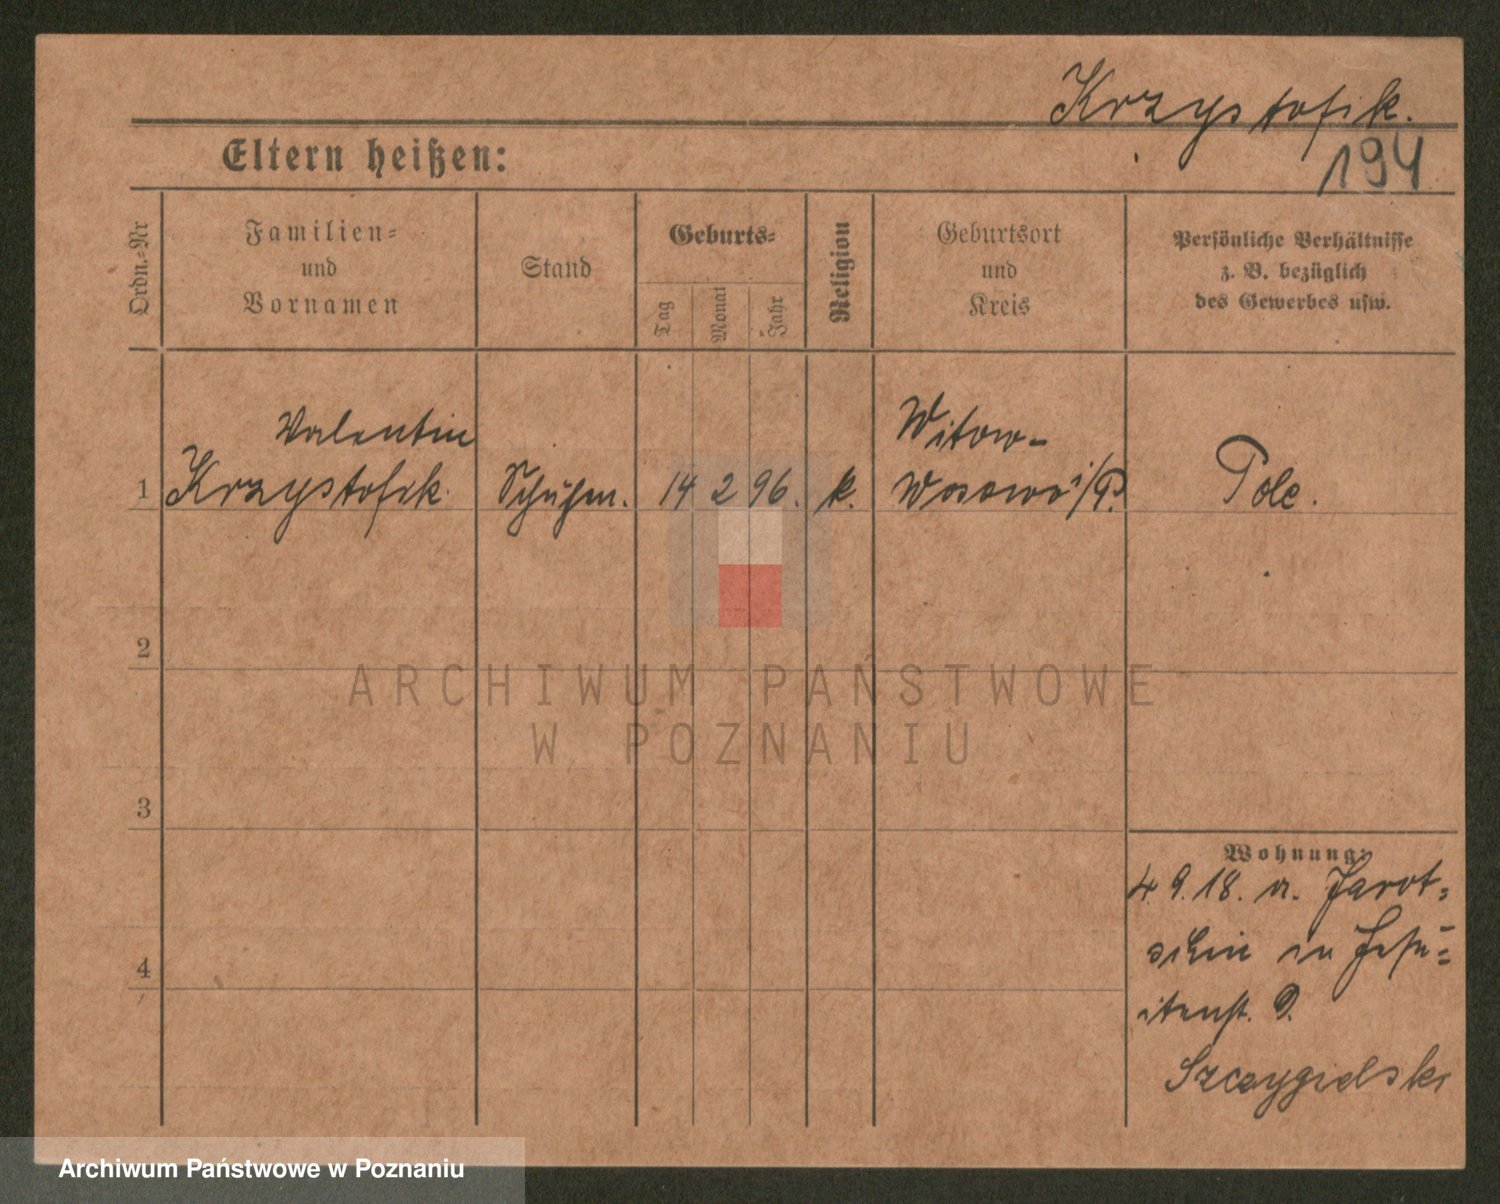 Krzystofik.
194
Eltern heißen:
Ordn.-Nr
Familien-
und
Vornamen
Stand
Geburts-
Tag
Monat
Jahr
Religion
Geburtsort
und
Kreis
Persönliche Verhältnisse
z. B. bezüglich
des Gewerbes usw.
Valentin
1 Krzystofik. Schuhm. 14 2 96. k.
Witow-
i/P.
Pole.
2
3
4
Wohnung:
4 9. 18. a. Jarot-
schin in Jesu-
itenst. 9.
Szczygielski
ARCHIWUM PAŃSTWOWE
W POZNANIU
Archiwum Państwowe w Poznaniu